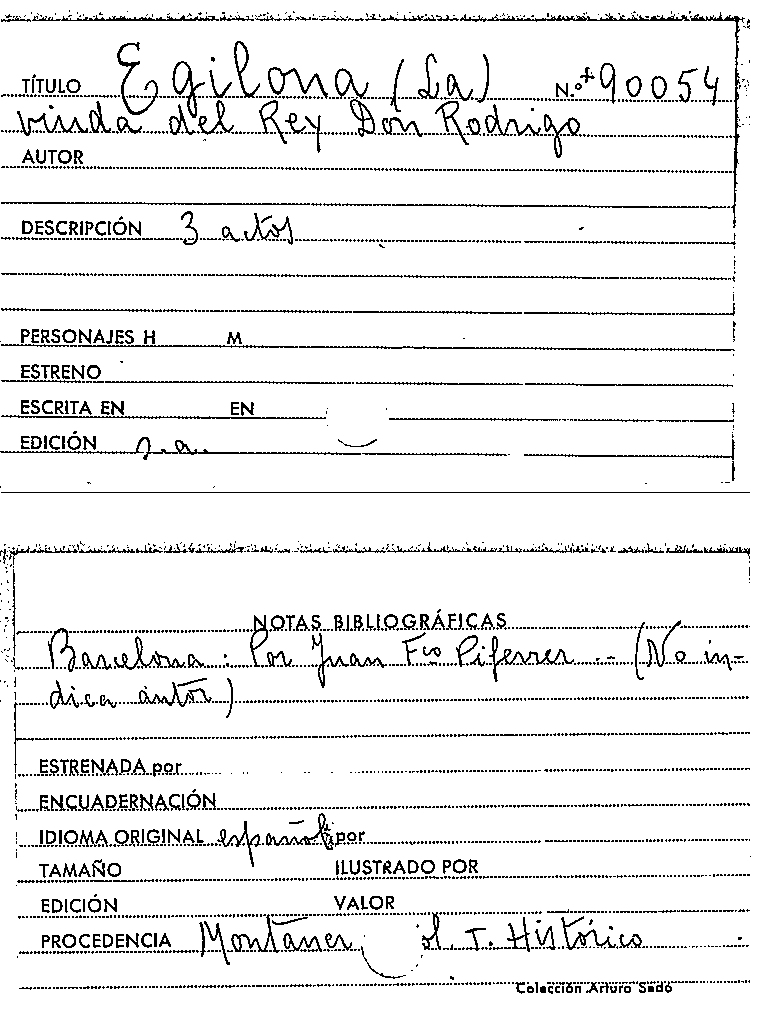 TÍTULO Egilona (La) N.º 90054
viuda del Rey Don Rodrigo
AUTOR
DESCRIPCIÓN 3 actos
PERSONAJES H M
ESTRENO
ESCRITA EN EN
EDICIÓN s.a.
NOTAS BIBLIOGRÁFICAS
Barcelona : Por Juan Fco Piferrer .- (No in-
dica autor)
ESTRENADA por
ENCUADERNACIÓN
IDIOMA ORIGINAL español por
TAMAÑO ILUSTRADO POR
EDICIÓN VALOR
PROCEDENCIA Montaner T. Histórico
Colección Arturo Sedó